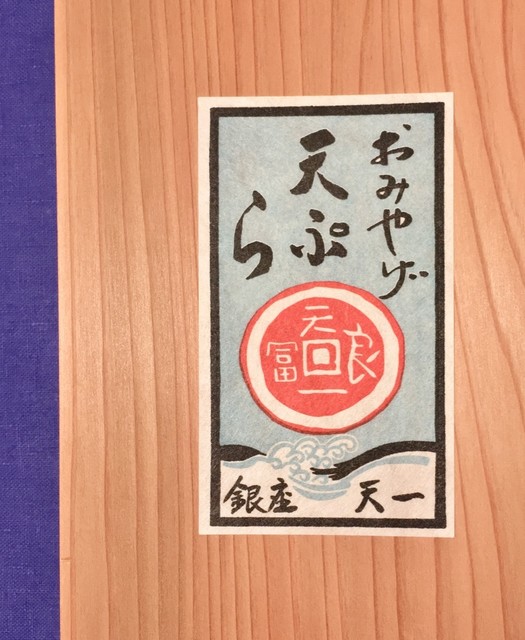 おみやげ
天ぷら
天
冨回良
一
銀座 天一